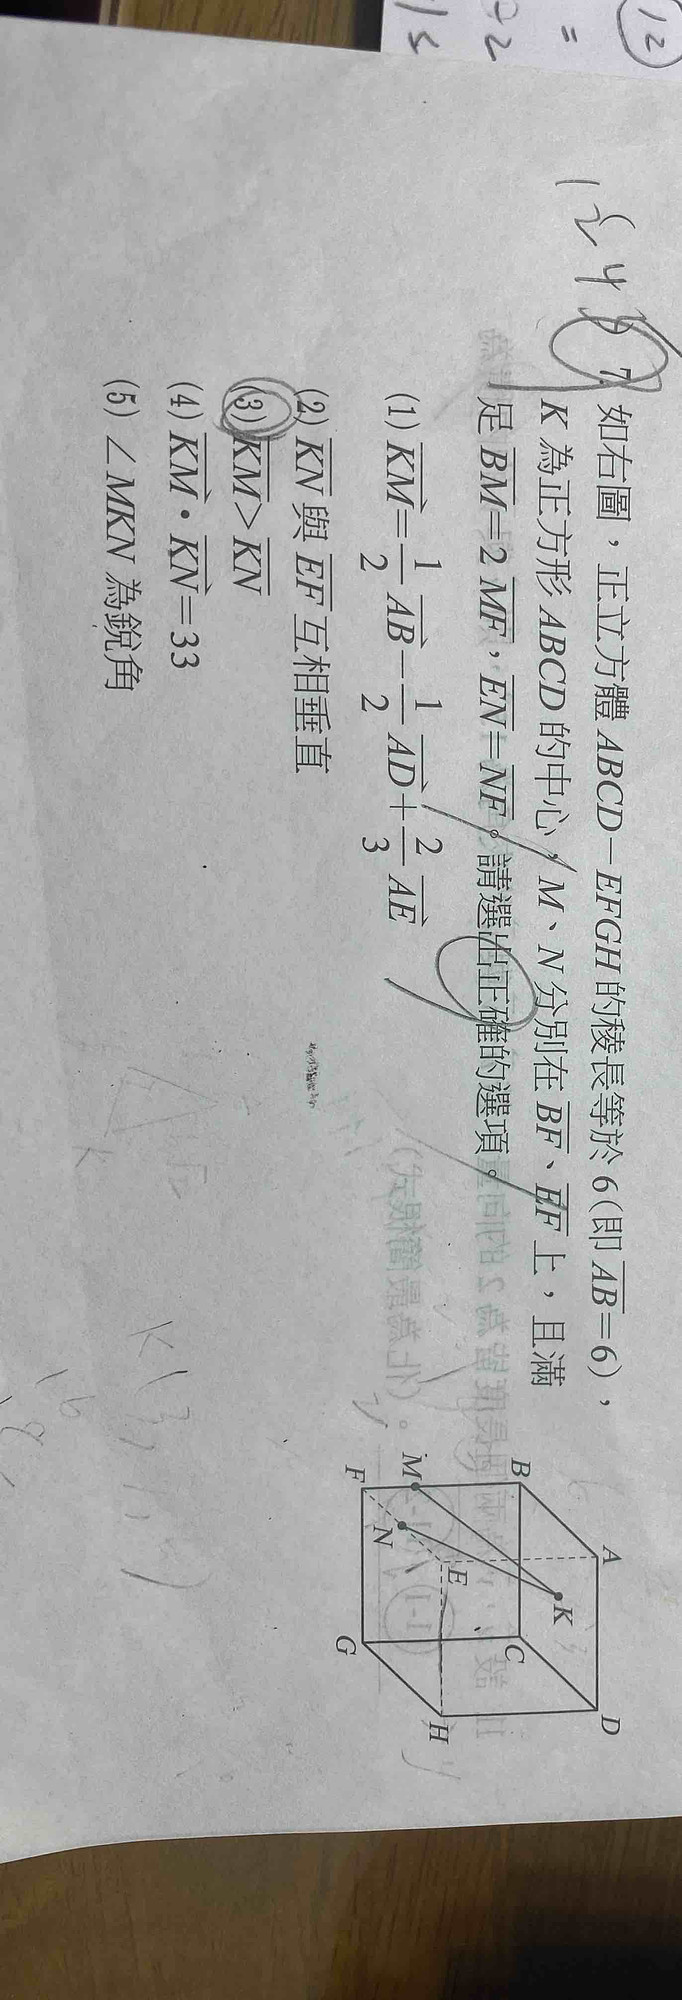 12
=
7. 如右圖，正立方體 ABCD－EFGH 的稜長等於 6(即 AB=6)，
K 為正方形 ABCD 的中心，M、N 分別在 BF、EF 上，且滿
足 BM=2 MF，EN=NF。請選出正確的選項。
(1) KM=1/2 AB－1/2 AD＋2/3 AE
(2) KN 與 EF 互相垂直
(3) KM>KN
(4) KM·KN=33
(5) ∠MKN 為銳角
A
D
B
K
C
M
E
N
F
H
G